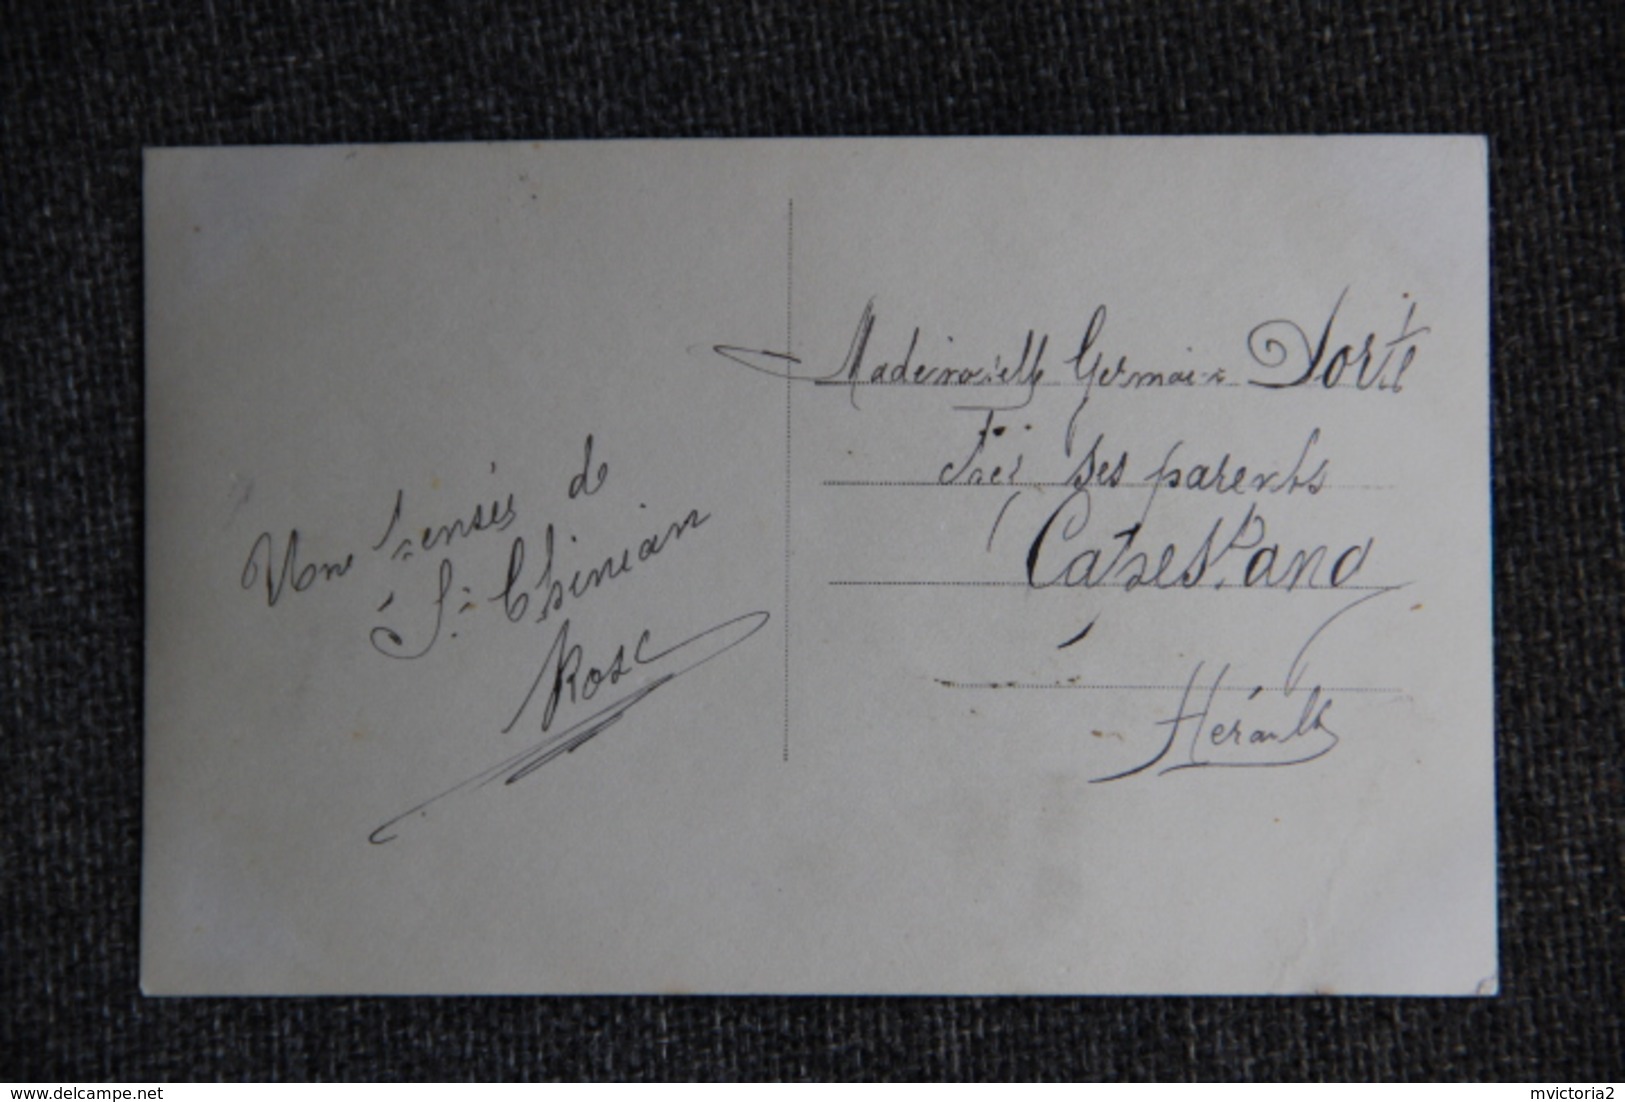 Une pensée de
St. Chinian
Rose
Mademoiselle Germaine
chez ses parents
Capestang
Hérault
www.delcampe.net
mvictoria2